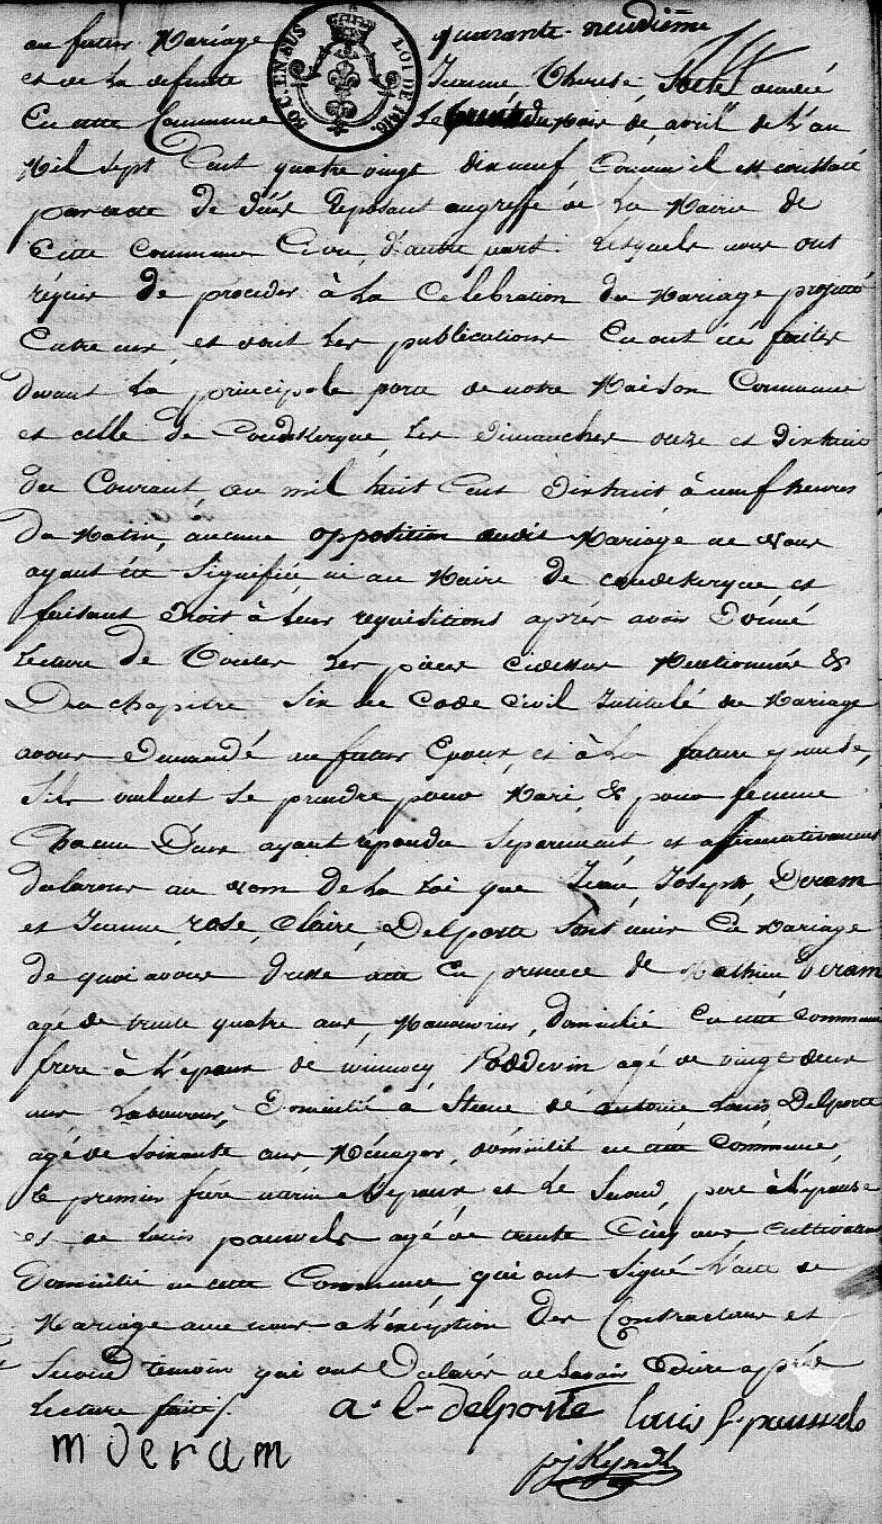 quarante-neuvième
au futur Mariage
et de la defunte Jeanne, Therese décédé
En cette Commune Le du Mois de avril de L'an
Mil Sept Cent quatre vingt dix neuf Comme il est constaté
par acte de déces Deposant au greffe de La Mairie de
Cette Commune d'autre part. Lesquels nous ont
réquis de proceder à La Celebration du Mariage projetté
Entre eux, et dont Les publications En ont été faites
Devant La principale porte de notre Maison Commune
et celle de Coudekerque, Les Dimanches onze et Dix huit
du Courant, an mil huit Cent Dix huit à neuf heures
Du Matin, aucune opposition audit Mariage ne Nous
ayant été Signifiée ni au Maire de coudekerque, et
faisant Droit à leur requisitions après avoir Donné
Lecture De Toutes Les pièces cidessus Mentionnée &
Du chapitre Six du Code Civil Intitulé du Mariage
avons Demandé au futur Epoux, et à La future epouse,
S'ils veulent Se prendre pour Mari, & pour femme
Chacun D'eux ayant répondu Séparement et affirmativement
declarons au nom De La Loi que Jean, Joseph, Deram
et Jeanne, rose, Claire, Delporte Sont unis En Mariage
De quoi avons dressé acte En presence de Mathieu Deram
agé de trente quatre ans, Manouvrier, domicilié En cette Commune
frere à L'epoux de winnocq Poddevin agé de vingt deux
ans Laboureur, Domicilié à Steene de antoine Louis Delporte
agé de Soixante ans Ménager, domicilié en cette Commune,
le premier frére uterin a L'epoux et Le Second pere à L'epouse
et de Louis pauwels agé de trente Cinq ans Cultivateur
Domicilié en cette Commune qui ont Signé L'acte de
Mariage avec nous a L'exception Des Contractans et
Second témoin qui ont Declarés ne Savoir Ecrire après
Lecture faite.
a. l. delporte louis f. pauwels
m deram
pj Kyndt
BO C. EN SUS LOI DE 1816.